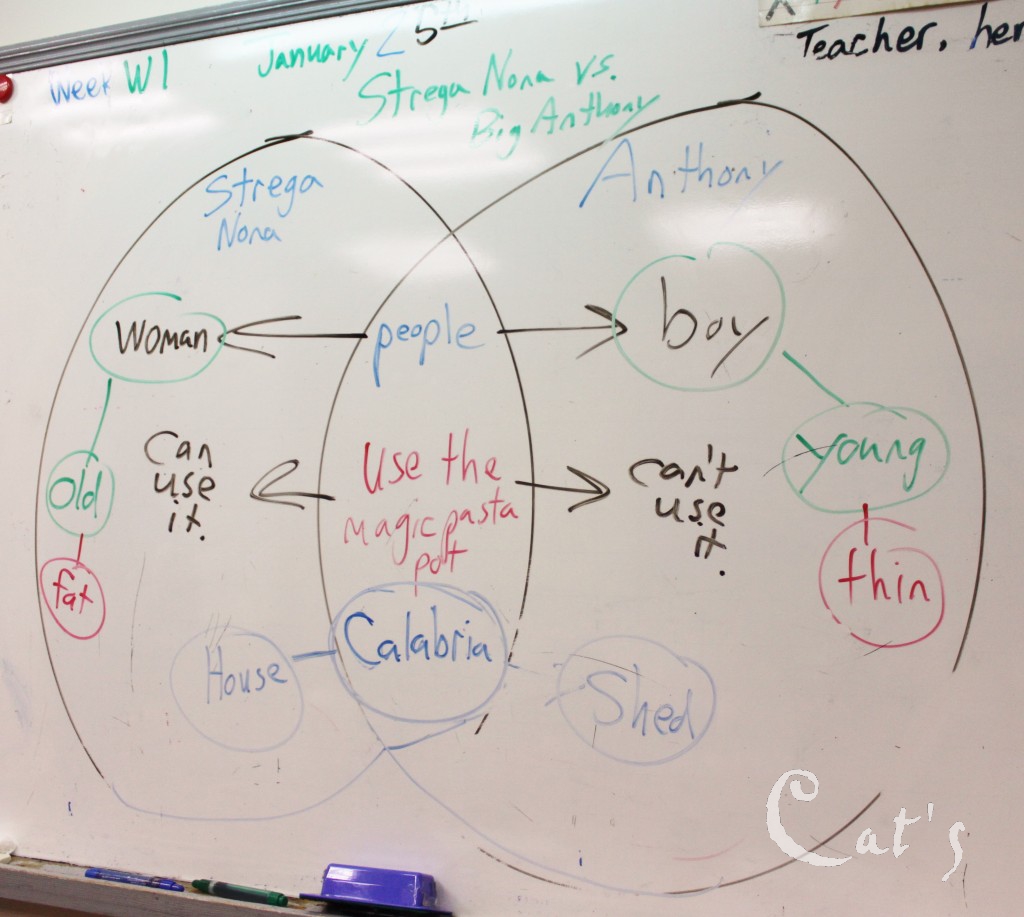 Teacher, her
Week W1
January 25th
Strega Nona vs.
Big Anthony
Strega
Nona
Anthony
Woman
people
boy
old
Can
use
it.
Use the
magic pasta
pot
can't
use
it.
young
fat
thin
House
Calabria
Shed
Cat's